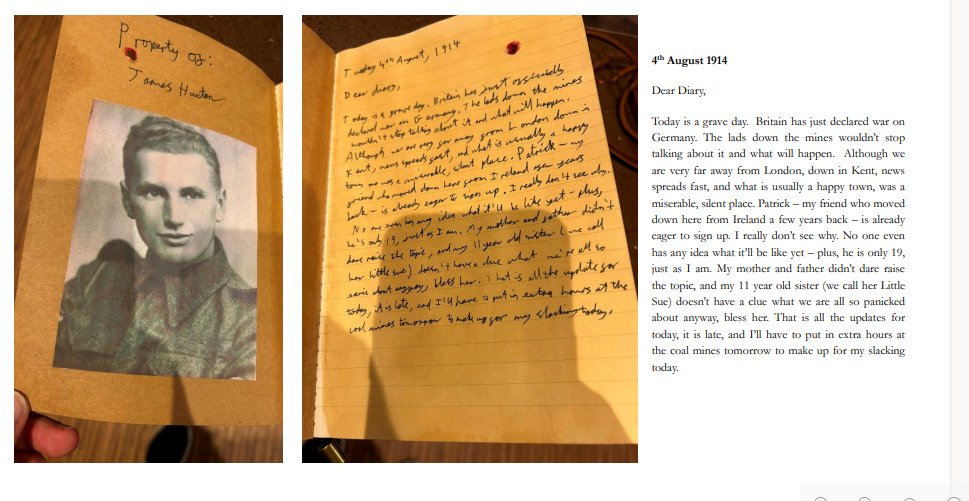 Property of:
James
Tuesday 4th August, 1914
Dear diary,
Today is a grave day. Britain has just officially
declared war on Germany. The lads down the mines
wouldn't stop talking about it and what will happen.
Although we are very far away from London down in
Kent, news spreads fast, and what is usually a happy
town was a miserable, silent place. Patrick – my
friend who moved down here from Ireland a few years
back – is already eager to sign up. I really don't see why.
No one even has any idea what it'll be like yet – plus,
he's only 19, just as I am. My mother and father didn't
dare raise the topic, and my 11 year old sister (we call
her little sue) doesn't have a clue what we're all so
about anyway, bless her. That is all the updates for
today, it is late, and I'll have to put in extra hours at the
coal mines tomorrow to make up for my slacking today.
4th August 1914
Dear Diary,
Today is a grave day. Britain has just declared war on
Germany. The lads down the mines wouldn't stop
talking about it and what will happen. Although we
are very far away from London, down in Kent, news
spreads fast, and what is usually a happy town, was a
miserable, silent place. Patrick – my friend who moved
down here from Ireland a few years back – is already
eager to sign up. I really don't see why. No one even
has any idea what it'll be like yet – plus, he is only 19,
just as I am. My mother and father didn't dare raise
the topic, and my 11 year old sister (we call her Little
Sue) doesn't have a clue what we are all so panicked
about anyway, bless her. That is all the updates for
today, it is late, and I'll have to put in extra hours at
the coal mines tomorrow to make up for my slacking
today.